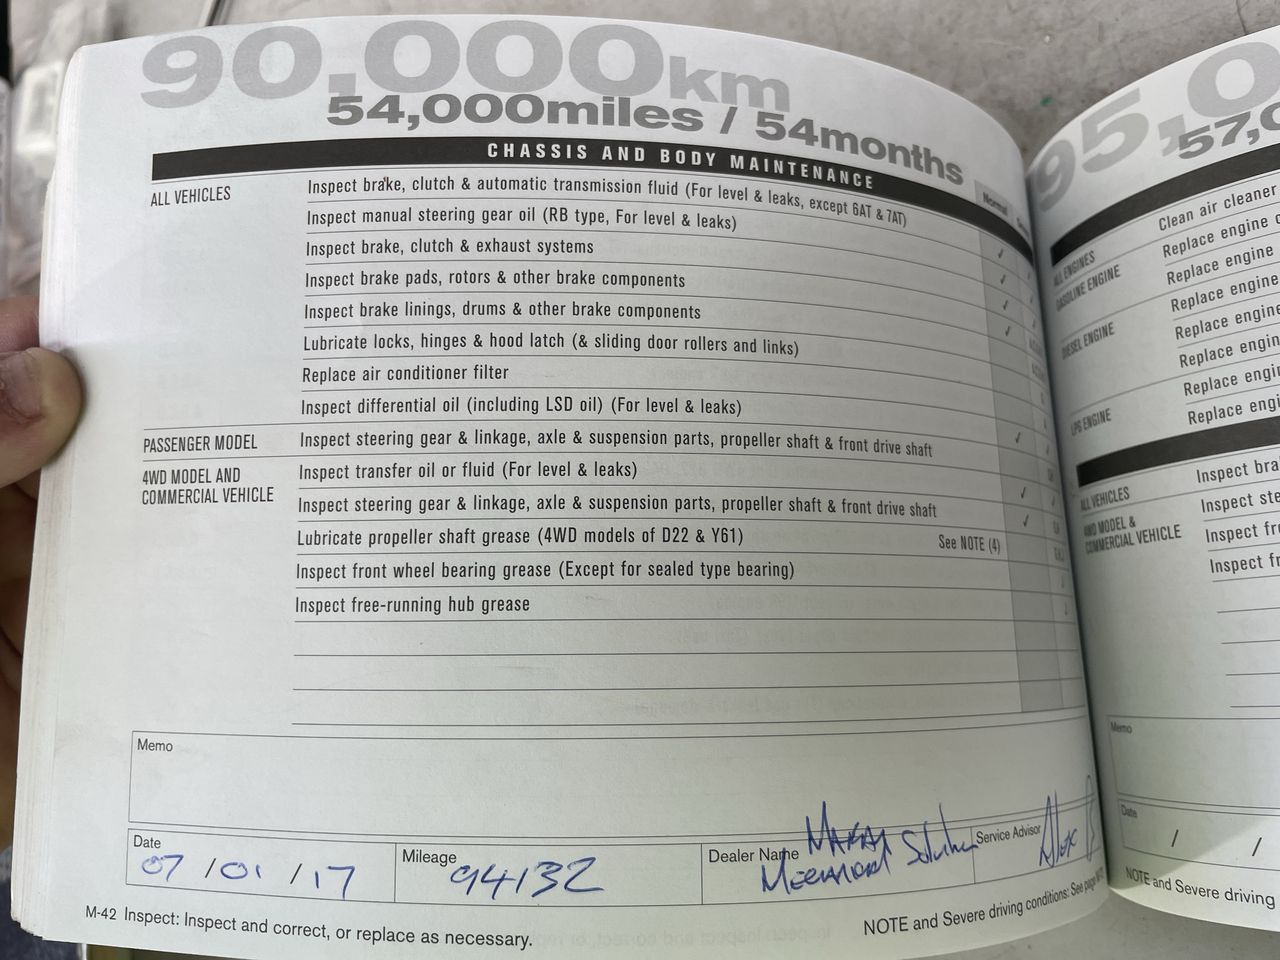 90,000km
54,000miles / 54months
CHASSIS AND BODY MAINTENANCE
Normal
ALL VEHICLES
Inspect brake, clutch & automatic transmission fluid (For level & leaks, except 6AT & 7AT)
Inspect manual steering gear oil (RB type, For level & leaks)
Inspect brake, clutch & exhaust systems
Inspect brake pads, rotors & other brake components
Inspect brake linings, drums & other brake components
Lubricate locks, hinges & hood latch (& sliding door rollers and links)
Replace air conditioner filter
Inspect differential oil (including LSD oil) (For level & leaks)
PASSENGER MODEL
Inspect steering gear & linkage, axle & suspension parts, propeller shaft & front drive shaft
4WD MODEL AND
COMMERCIAL VEHICLE
Inspect transfer oil or fluid (For level & leaks)
Inspect steering gear & linkage, axle & suspension parts, propeller shaft & front drive shaft
Lubricate propeller shaft grease (4WD models of D22 & Y61) See NOTE (4)
Inspect front wheel bearing grease (Except for sealed type bearing)
Inspect free-running hub grease
Memo
Date
07/01/17
Mileage
94132
Dealer Name
Service Advisor
Alex
M-42 Inspect: Inspect and correct, or replace as necessary.
NOTE and Severe driving conditions: See page
95,0
57,0
ALL ENGINES
Clean air cleaner
GASOLINE ENGINE
Replace engine
Replace engine
DIESEL ENGINE
Replace engine
Replace engine
Replace engin
Replace engi
LPG ENGINE
Replace engi
ALL VEHICLES
Inspect bra
4WD MODEL &
COMMERCIAL VEHICLE
Inspect ste
Inspect fr
Inspect fr
Memo
Date
/ /
NOTE and Severe driving